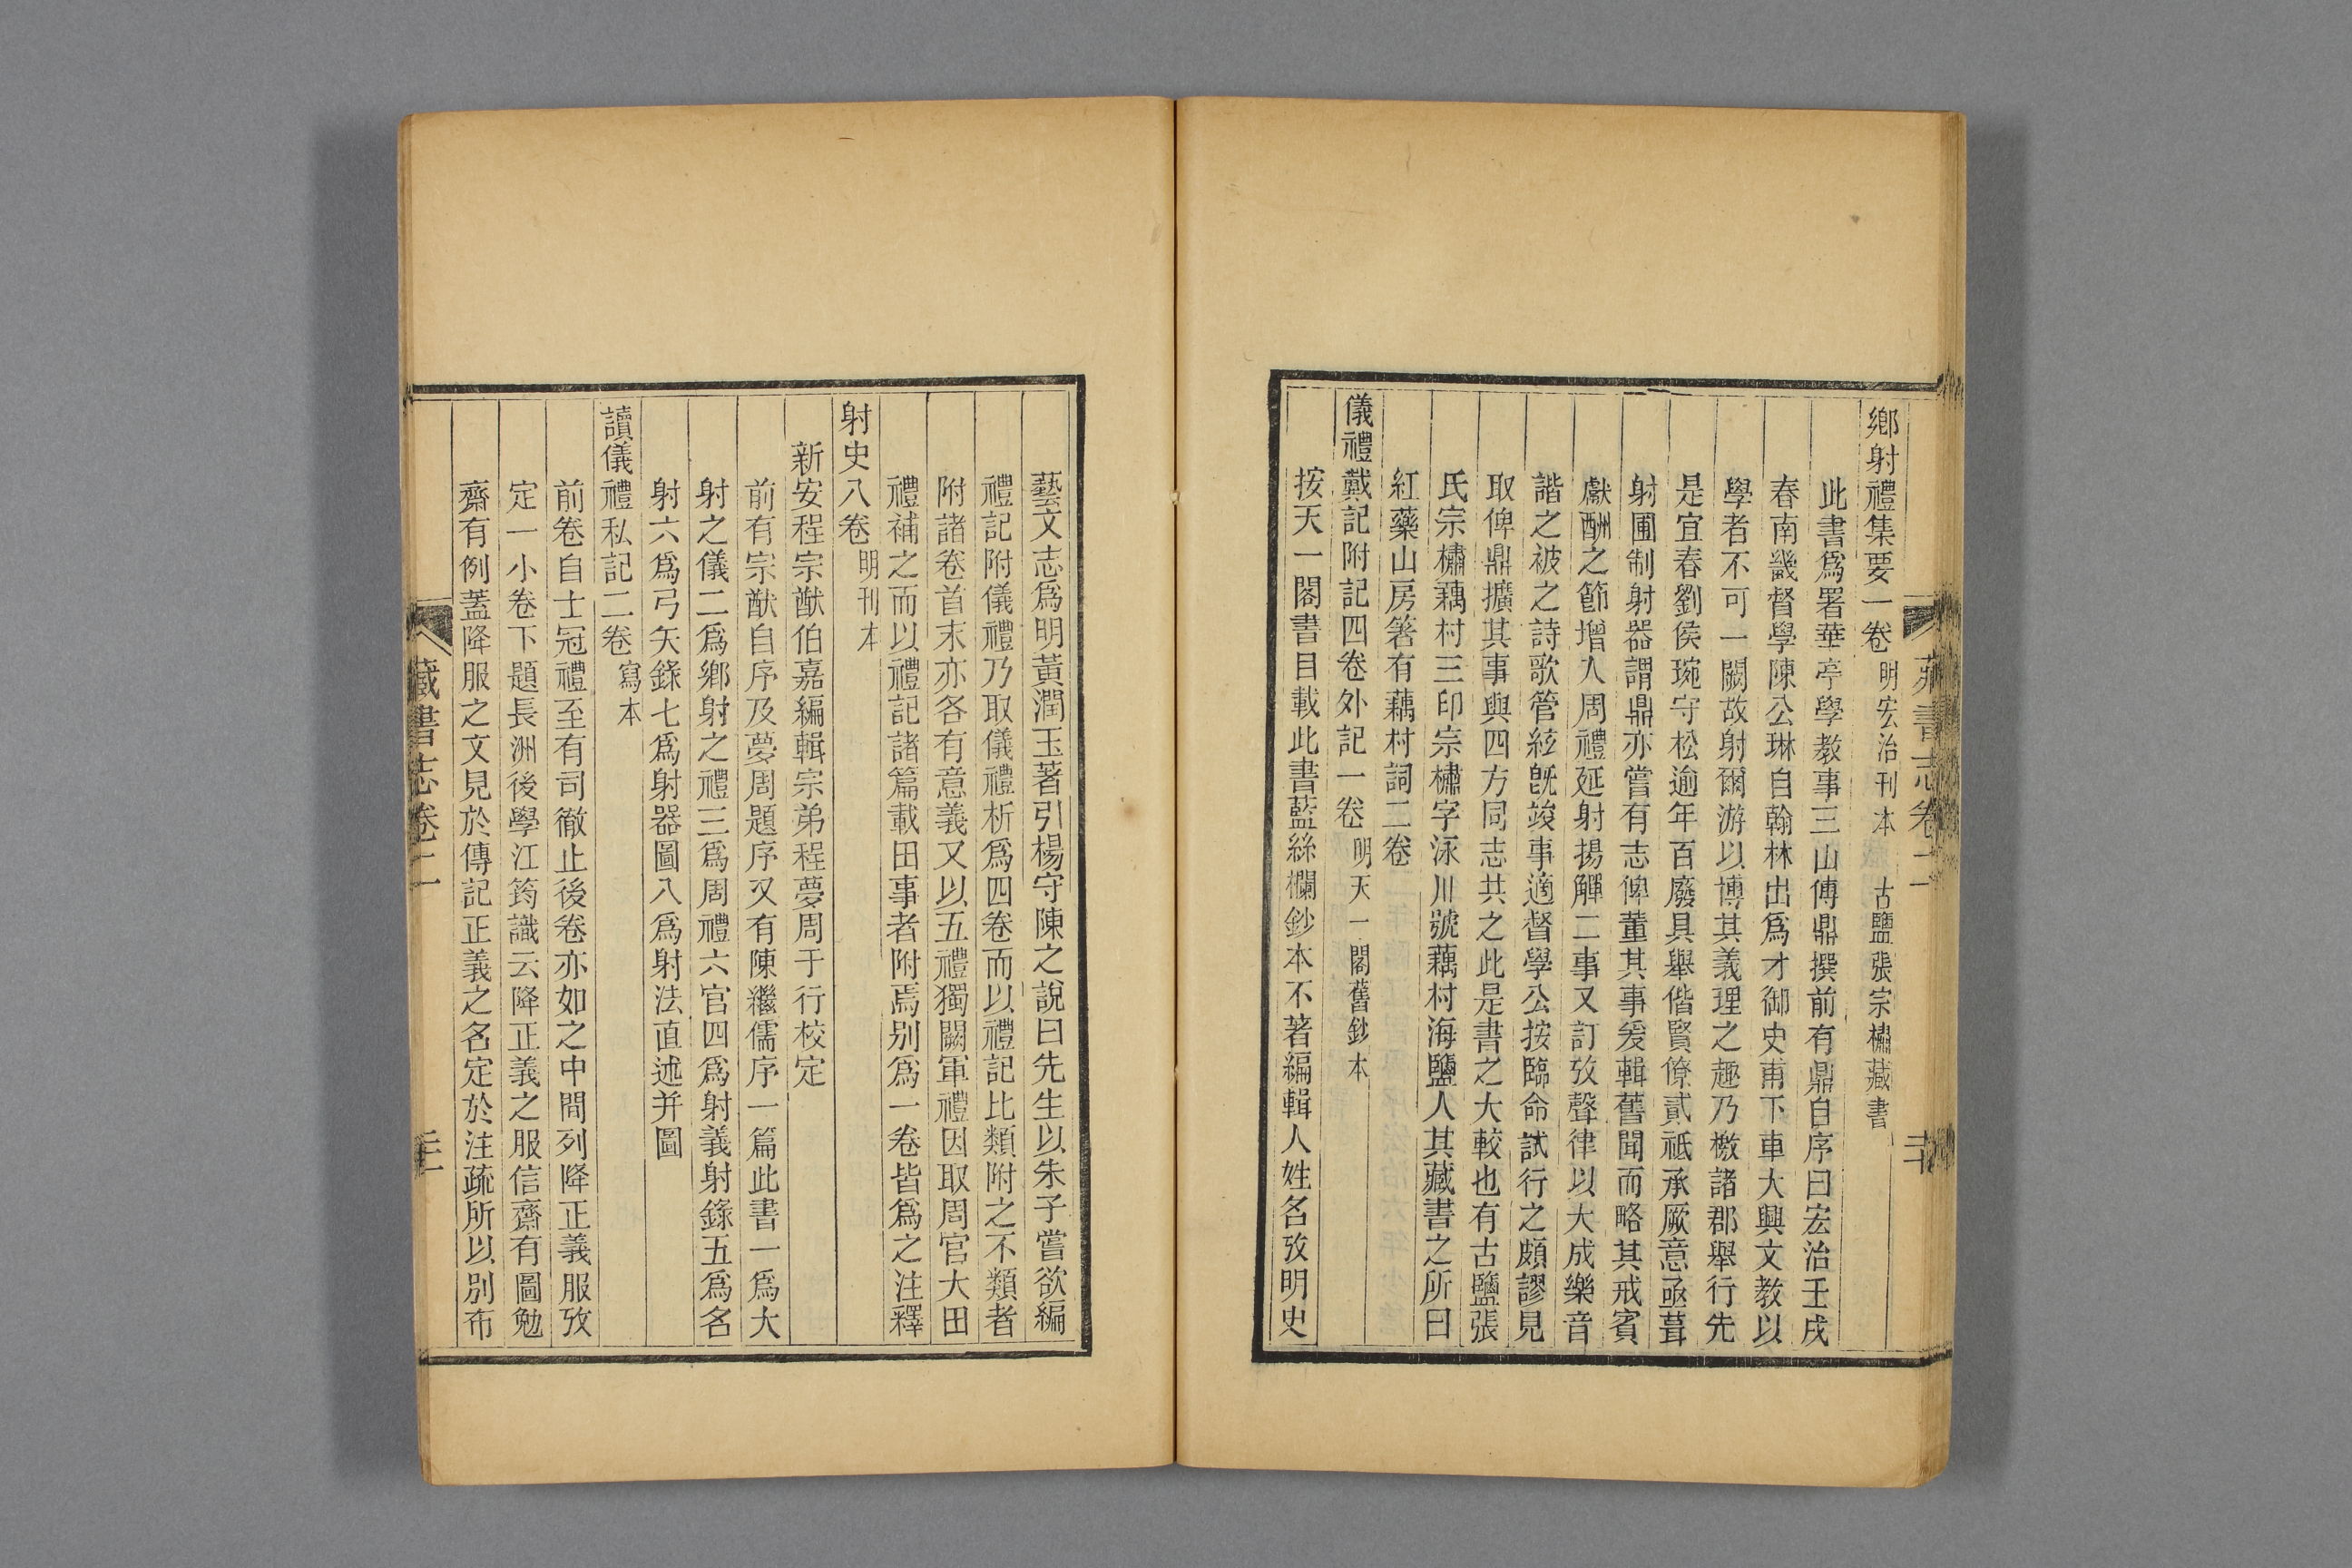 鄉射禮集要一卷 明宏治刊本 古鹽張宗橚藏書
此書爲署華亭學教事三山傅鼎撰前有鼎自序曰宏治壬戌
春南畿督學陳公琳自翰林出爲才御史甫下車大興文教以
學者不可一闕故射爾游以博其義理之趣乃檄諸郡舉行先
是宜春劉侯琬守松逾年百廢具舉偕賢僚貳祗承厥意亟葺
射圃制射器謂鼎亦嘗有志俾董其事爰輯舊聞而略其戒賓
獻酬之節增入周禮延射揚觶二事又訂攷聲律以大成樂音
諧之被之詩歌管絃旣竣事適督學公按臨命試行之頗謬見
取俾鼎擴其事與四方同志共之此是書之大較也有古鹽張
氏宗橚藕村三印宗橚字泳川號藕村海鹽人其藏書之所曰
紅藥山房箸有藕村詞二卷
儀禮戴記附記四卷外記一卷 明天一閣舊鈔本
按天一閣書目載此書藍絲欄鈔本不著編輯人姓名攷明史
藏書志卷二
藝文志爲明黃潤玉著引楊守陳之說曰先生以朱子嘗欲編
禮記附儀禮乃取儀禮析爲四卷而以禮記比類附之不類者
附諸卷首末亦各有意義又以五禮獨闕軍禮因取周官大田
禮補之而以禮記諸篇載田事者附焉别爲一卷皆爲之注釋
射史八卷 明刊本
新安程宗猷伯嘉編輯宗弟程夢周于行校定
前有宗猷自序及夢周題序又有陳繼儒序一篇此書一爲大
射之儀二爲鄉射之禮三爲周禮六官四爲射義射錄五爲名
射六爲弓矢錄七爲射器圖八爲射法直述并圖
讀儀禮私記二卷 寫本
前卷自士冠禮至有司徹止後卷亦如之中間列降正義服攷
定一小卷下題長洲後學江筠識云降正義之服信齋有圖勉
齋有例蓋降服之文見於傳記正義之名定於注疏所以別布
藏書志卷二